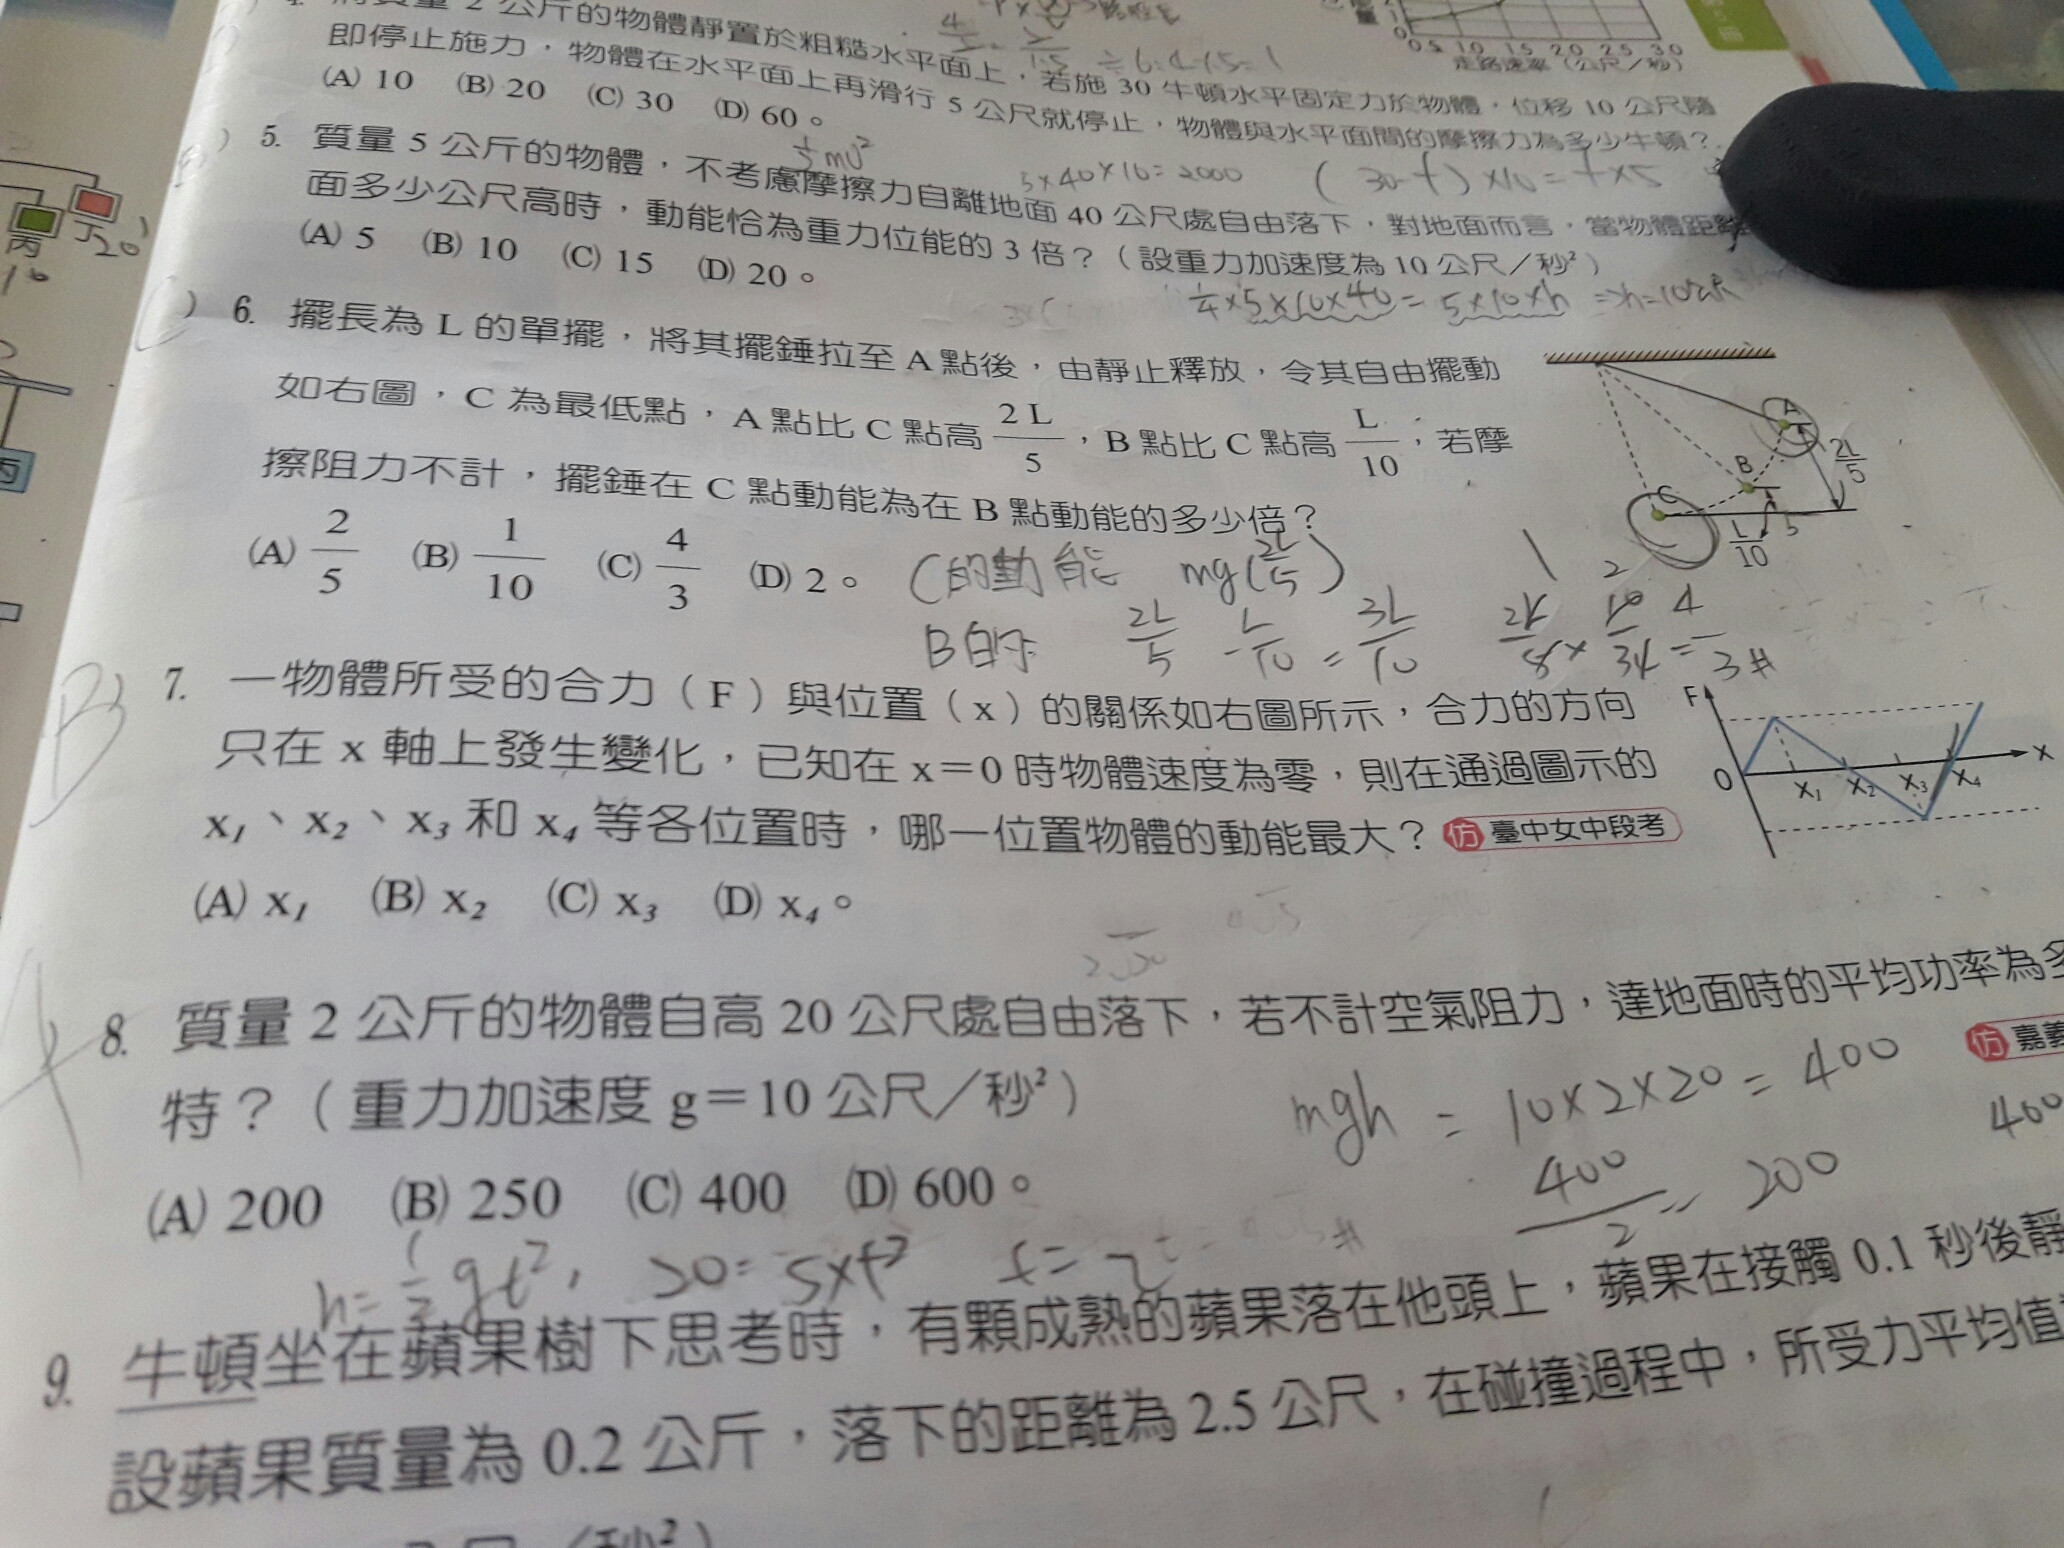 2 公斤的物體靜置於粗糙水平面上，若施 30 牛頓水平固定力於物體，位移 10 公尺隨
即停止施力，物體在水平面上再滑行 5 公尺就停止，物體與水平面間的摩擦力為多少牛頓？
(A) 10 (B) 20 (C) 30 (D) 60。
0 0.5 1.0 1.5 2.0 2.5 3.0
走路速率（公尺／秒）
(30-f)×10=f×5
½mv²
5×40×10=2000
5. 質量 5 公斤的物體，不考慮摩擦力自離地面 40 公尺處自由落下，對地面而言，當物體距離
面多少公尺高時，動能恰為重力位能的 3 倍？（設重力加速度為 10 公尺／秒²）
(A) 5 (B) 10 (C) 15 (D) 20。
¼×5×10×40=5×10×h
6. 擺長為 L 的單擺，將其擺錘拉至 A 點後，由靜止釋放，令其自由擺動
如右圖，C 為最低點，A 點比 C 點高 2L/5，B 點比 C 點高 L/10，若摩
擦阻力不計，擺錘在 C 點動能為在 B 點動能的多少倍？
(A) 2/5 (B) 1/10 (C) 4/3 (D) 2。
A
B
C
2L/5
L/10
C的動能 mg(2L/5)
2L/5 - L/10 = 3L/10
B 7. 一物體所受的合力（F）與位置（x）的關係如右圖所示，合力的方向
只在 x 軸上發生變化，已知在 x＝0 時物體速度為零，則在通過圖示的
x₁、x₂、x₃ 和 x₄ 等各位置時，哪一位置物體的動能最大？ 仿 臺中女中段考
(A) x₁ (B) x₂ (C) x₃ (D) x₄。
F
O x₁ x₂ x₃ x₄ x
A 8. 質量 2 公斤的物體自高 20 公尺處自由落下，若不計空氣阻力，達地面時的平均功率為多
特？（重力加速度 g＝10 公尺／秒²） 仿 嘉義
mgh = 10×2×20 = 400
400/2 = 200
400
(A) 200 (B) 250 (C) 400 (D) 600。
h=½gt², 20=5×t² t=2
9. 牛頓坐在蘋果樹下思考時，有顆成熟的蘋果落在他頭上，蘋果在接觸 0.1 秒後靜
設蘋果質量為 0.2 公斤，落下的距離為 2.5 公尺，在碰撞過程中，所受力平均值
丙
丁
20
10
丙